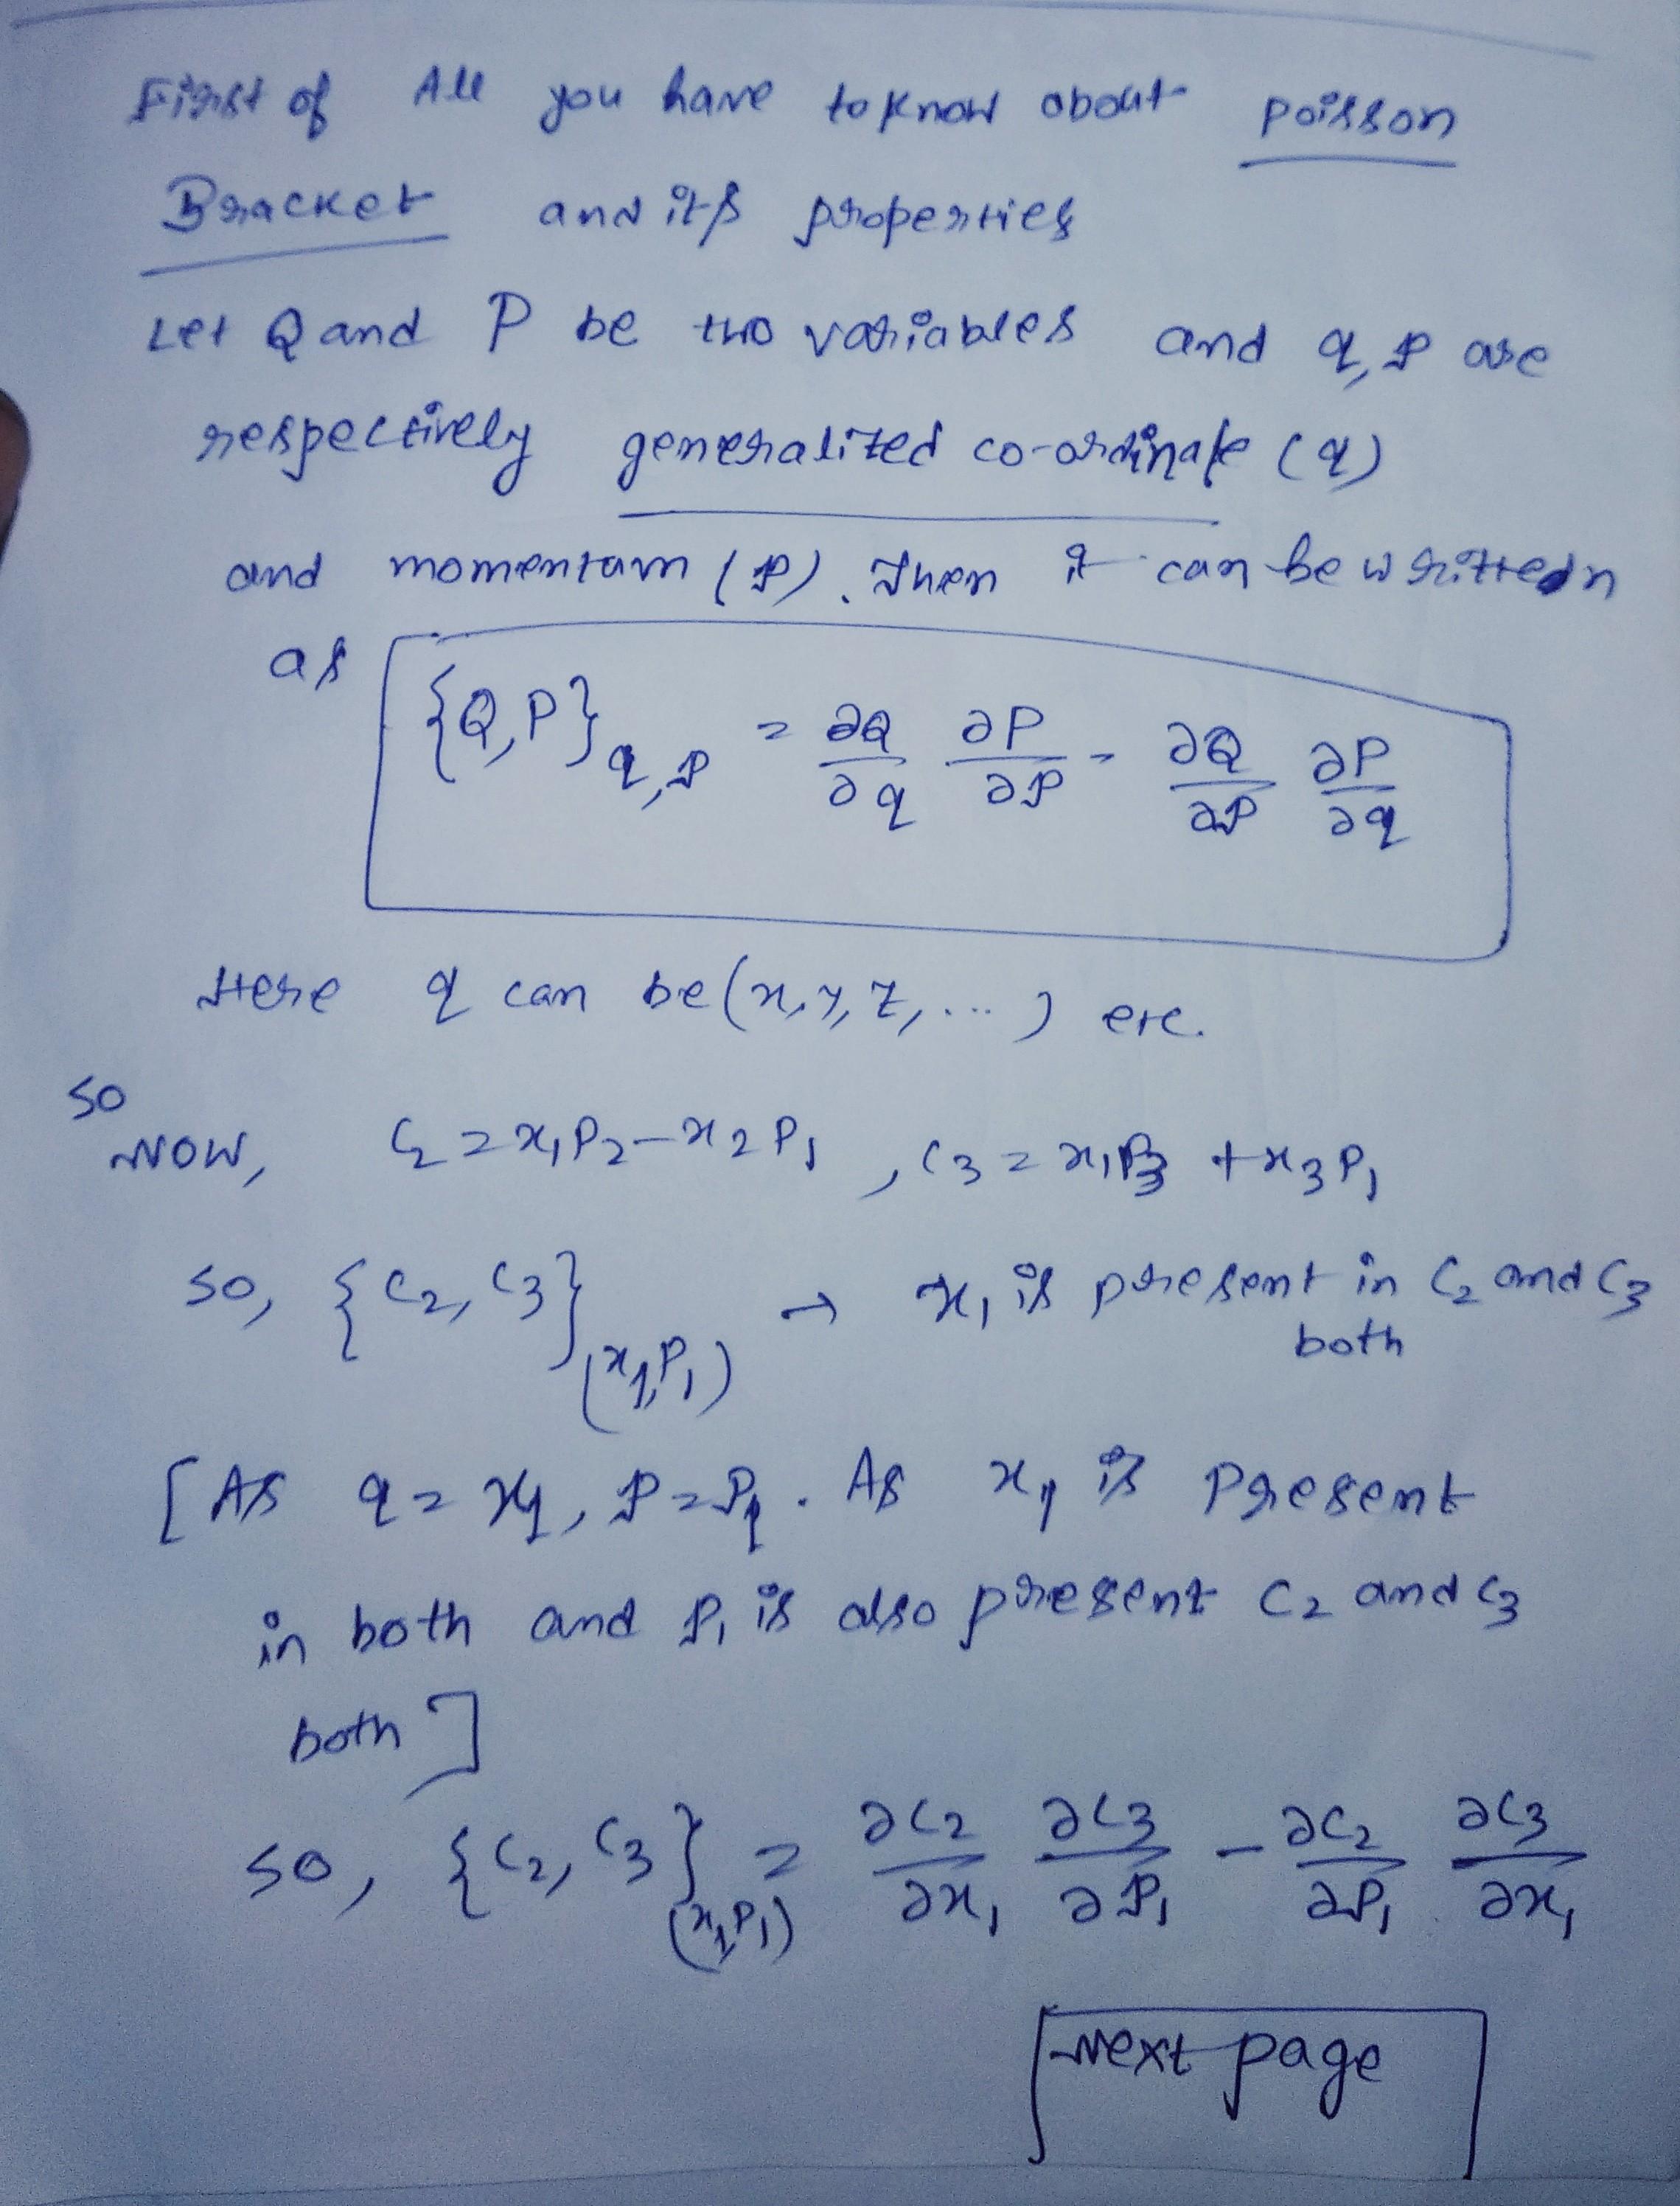 First of All you have to know about Poisson
Bracket and its properties
Let Q and P be two variables and q, p are
respectively generalized co-ordinate (q)
and momentum (p). Then it can be written
as {Q,P}q,p = ∂Q/∂q ∂P/∂p - ∂Q/∂p ∂P/∂q
Here q can be (x, y, z, ...) etc.
so
Now, C2 = x1P2 - x2P1, C3 = x1P3 + x3P1
so, {C2, C3}(x1,P1) → x1 is present in C2 and C3
both
[As q = x1, p = P1. As x1 is present
in both and P1 is also present C2 and C3
both]
so, {C2, C3}(x1,P1) = ∂C2/∂x1 ∂C3/∂P1 - ∂C2/∂P1 ∂C3/∂x1
Next page